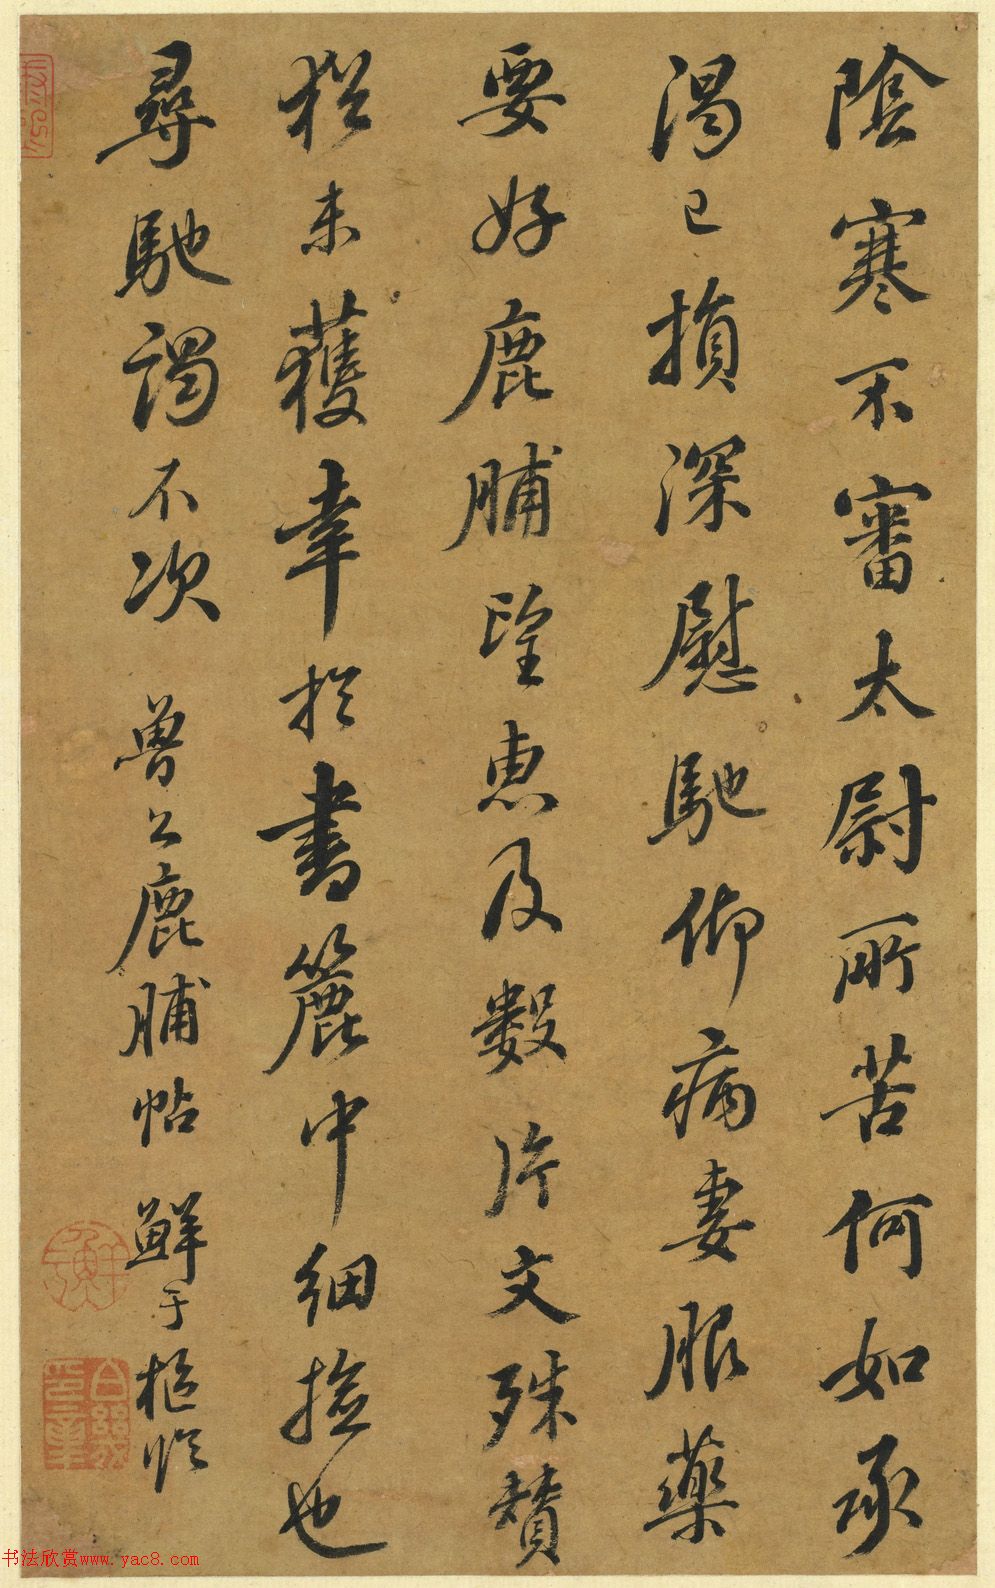 陰寒不審太尉所苦何如承
渴已損深慰馳仰病妻服藥
要好鹿脯望惠及數片文殊贊
猶未獲幸於書簏中細撿也
尋馳謁不次 魯公鹿脯帖 鮮于樞臨
書法欣赏www.yac8.com